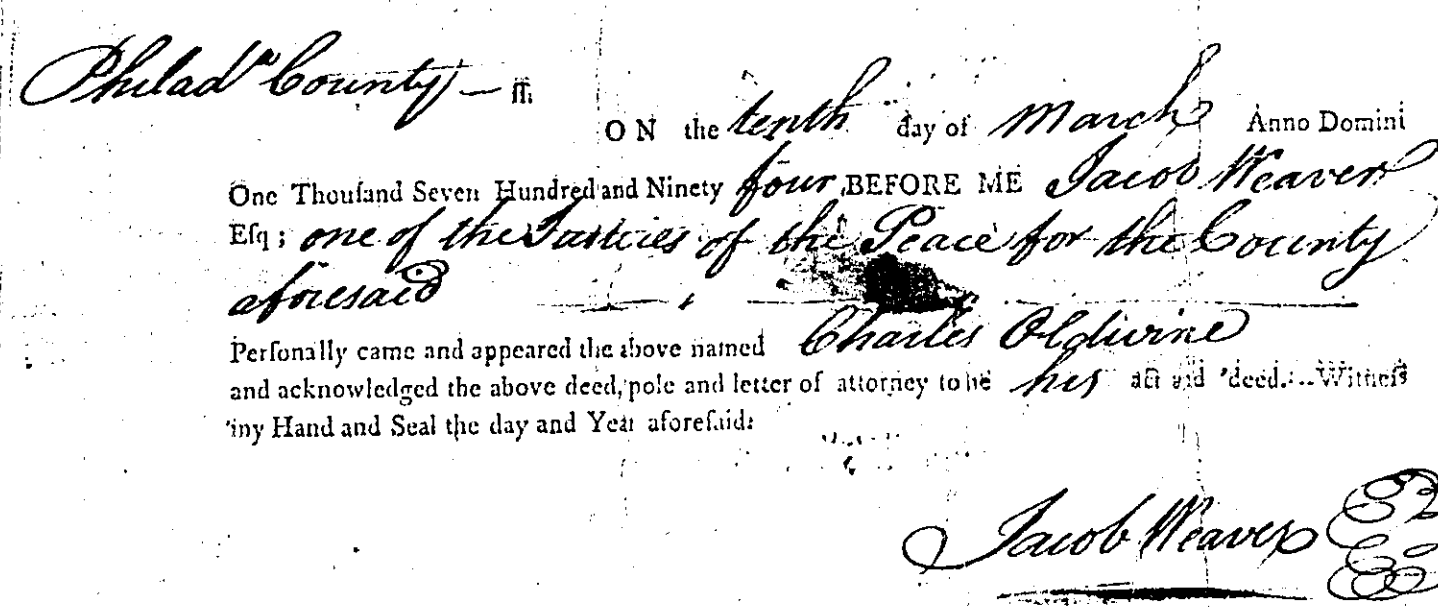 Philadᵃ County — ſſ.
ON the tenth day of March Anno Domini
One Thouſand Seven Hundred and Ninety four BEFORE ME Jacob Weaver
Eſq; one of the Justicies of the Peace for the County
aforesaid
Perſonally came and appeared the above named Charles Oldwine
and acknowledged the above deed, pole and letter of attorney to be his act and deed.—Witneſs
my Hand and Seal the day and Year aforeſaid:
Jacob Weaver